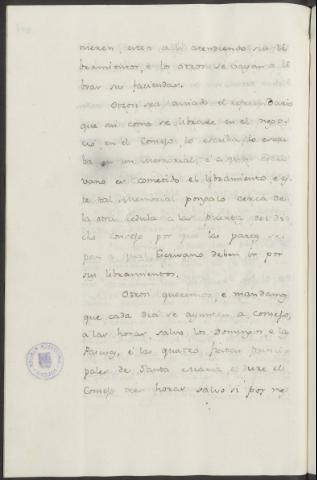 nieren, esten a l atendiendo sus li
bramientos, e los otros se vayan a li
brar sus faciendas.
Otrosi sea avisado el
que asi como se librare en el nego
cio, en el Consejo, lo escriba
ba en un memorial, e a
vano es cometido el libramiento, e es
te tal memorial pongalo cerca de
la otra cedula a las puertas del di
cho Consejo por que las partes se
pan a qual Escrivano deben ir por
sus libramientos.
Otrosi queremos, e mandamos
que cada dia se ayunten a Consejo,
a las horas, salvo los Domingos, e la
Pascua, e las quatro fiestas princi
pales de Santa Maria e dure el
Consejo tres horas salvo si por ne